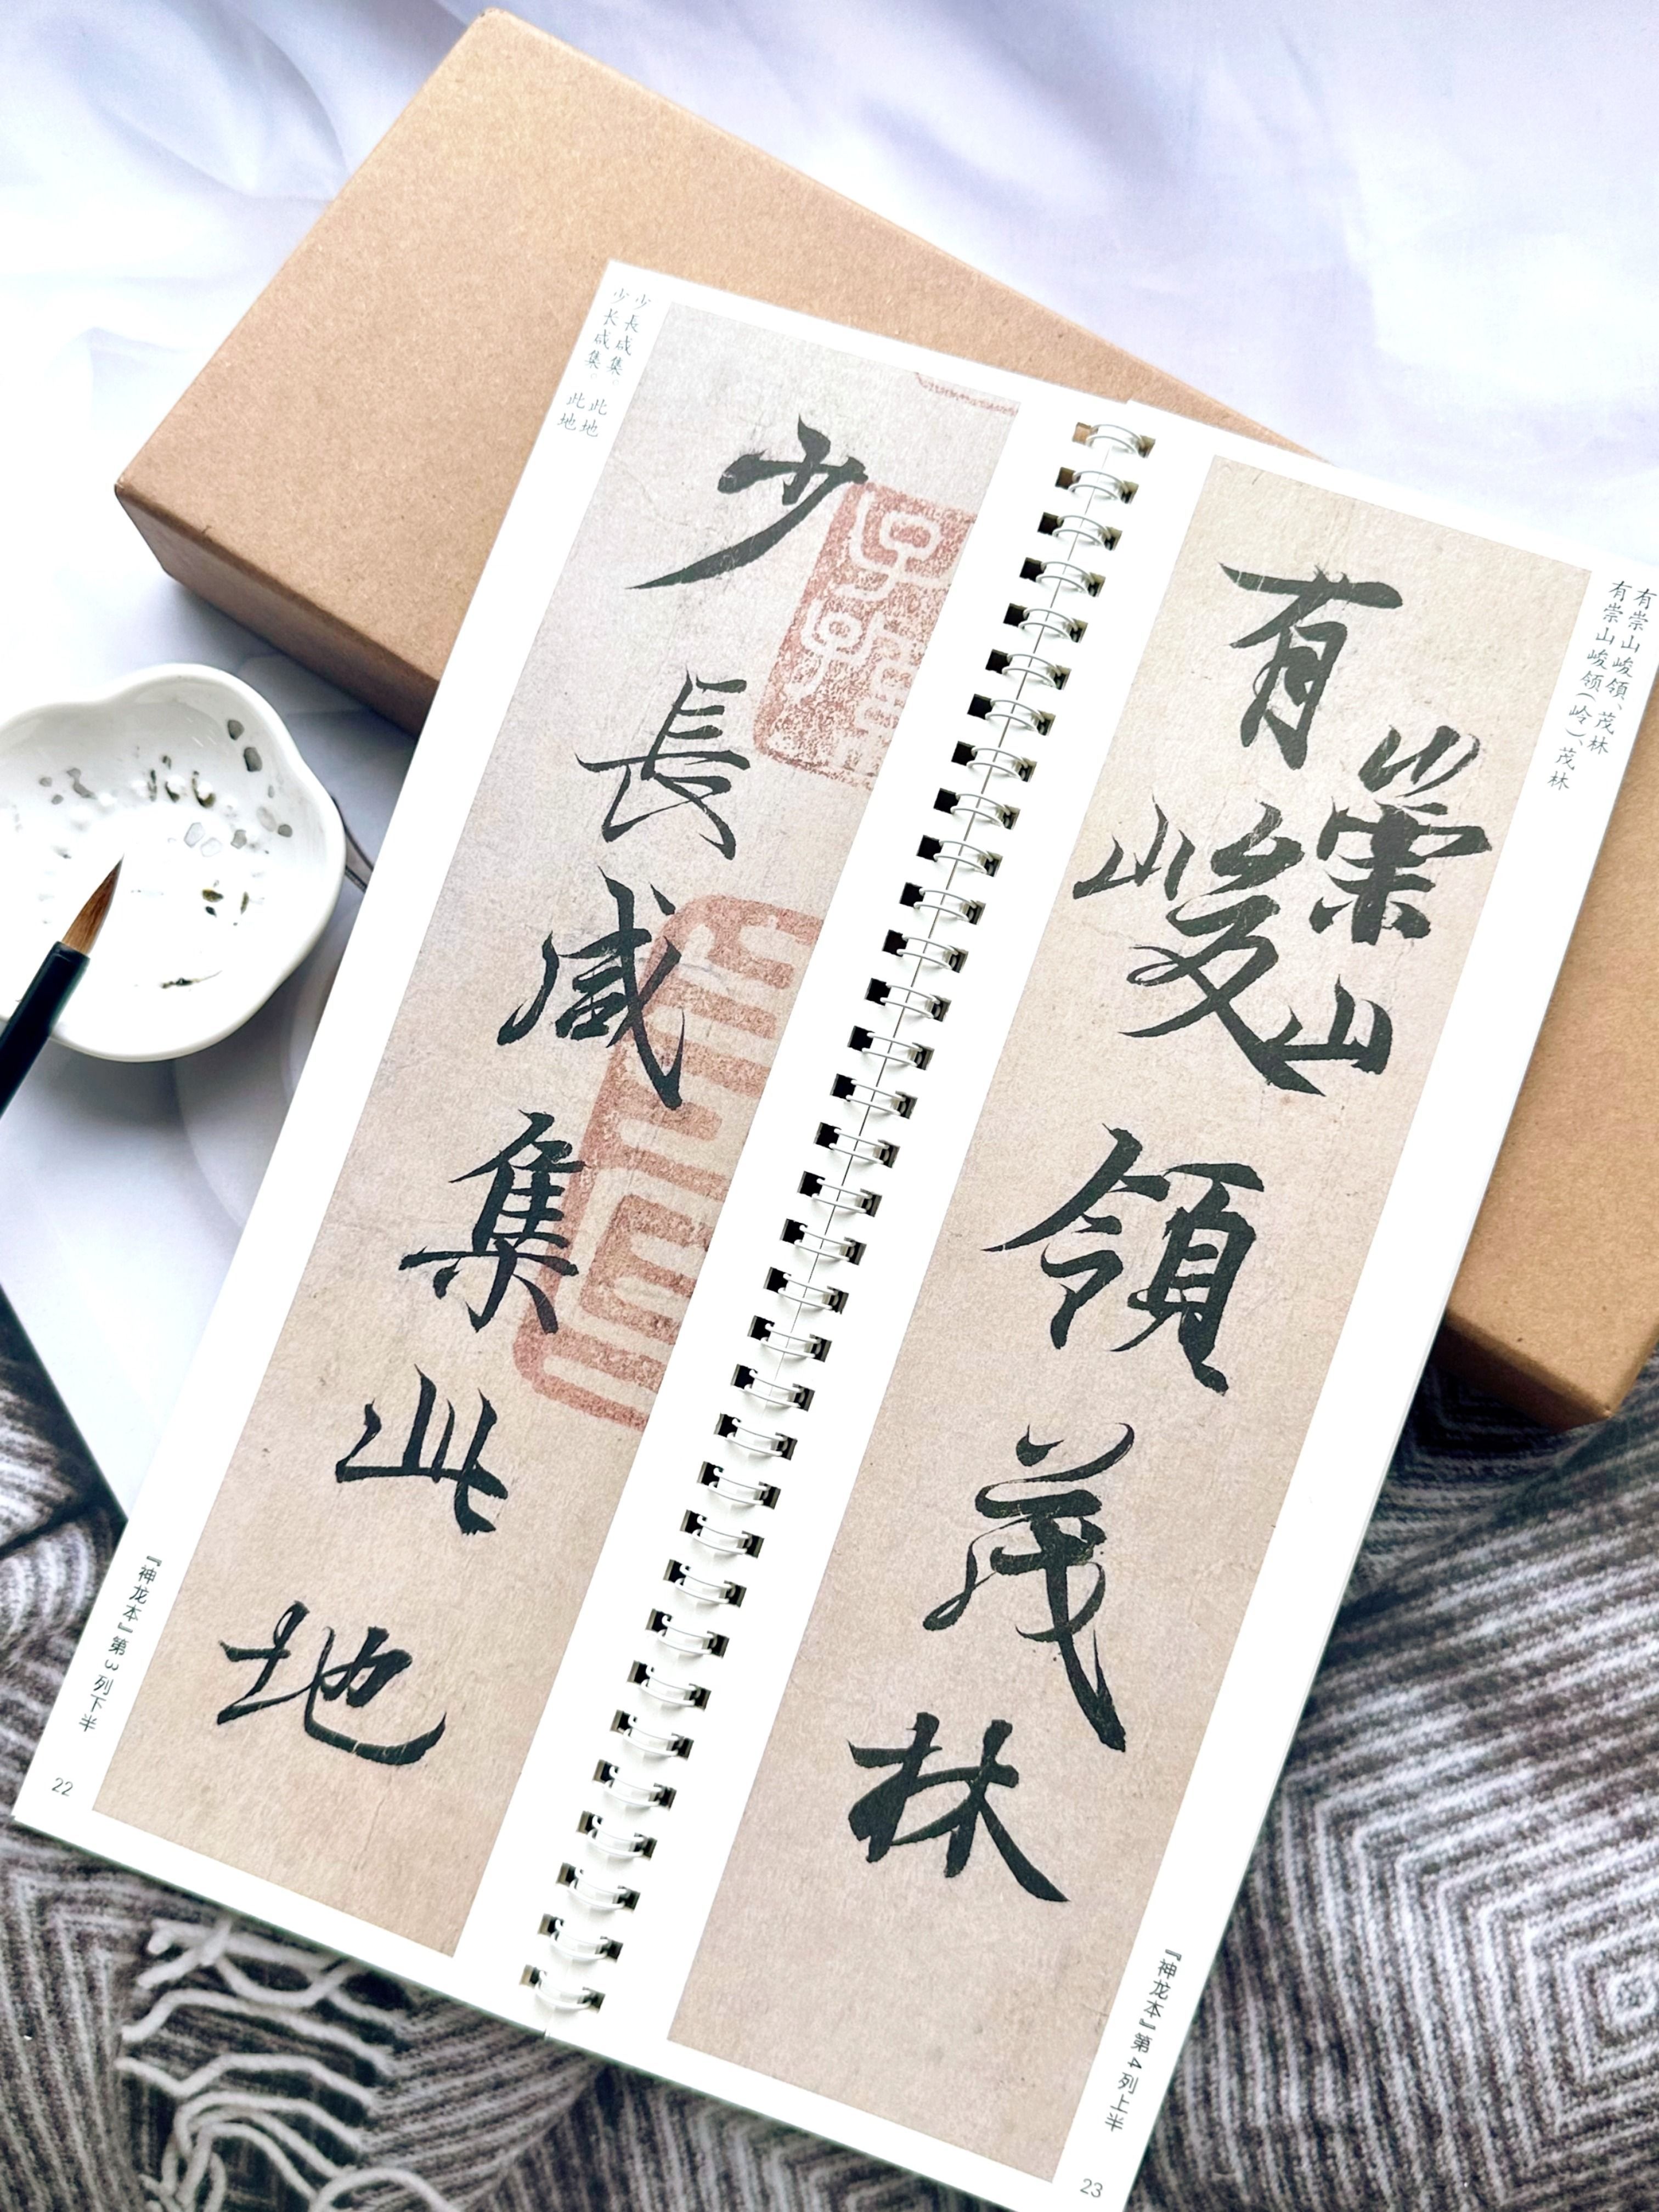 少長咸集。此地
少长咸集。此地
少長咸集此地
『神龙本』第3列下半
22
有崇山峻領、茂林
有崇山峻领(岭)、茂林
有崇山峻領茂林
『神龙本』第4列上半
23